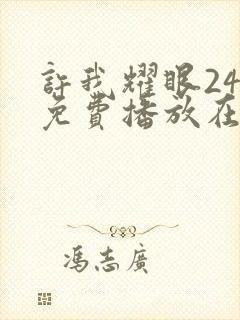 許我耀眼24
免費播放在
馮志廣